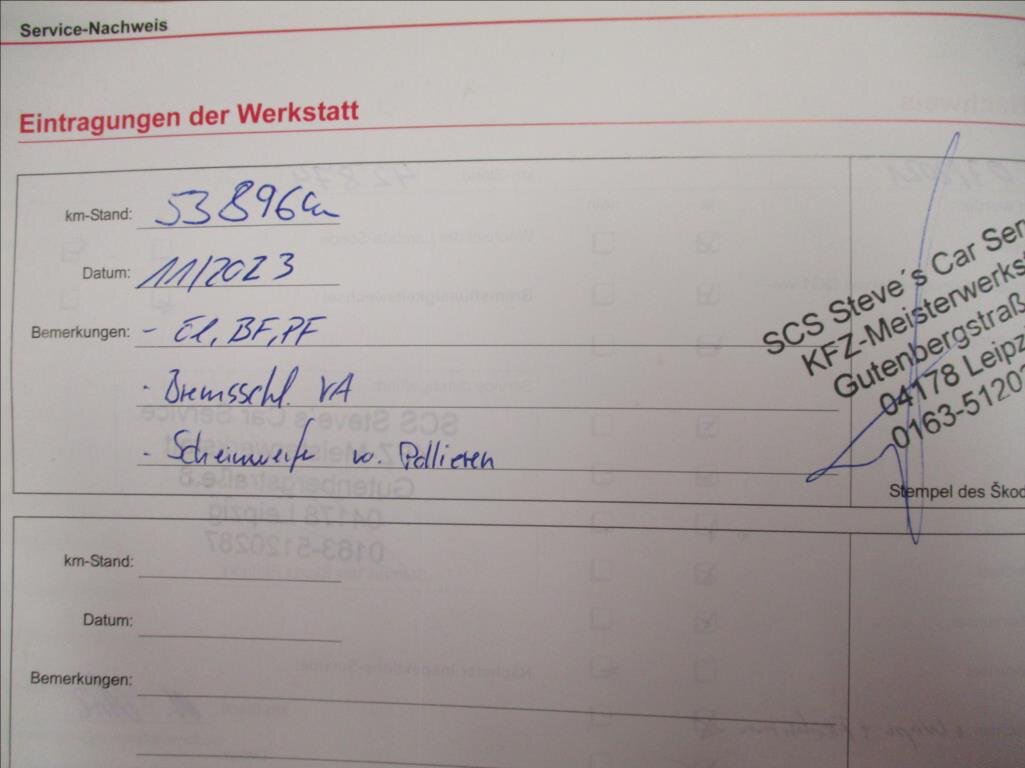 Service-Nachweis
Eintragungen der Werkstatt
km-Stand: 53 896 km
Datum: 11/2023
Bemerkungen: - Öl, BF, PF
- Bremsschl. VA
- Scheinweifer v. Pollieren
SCS Steve´s Car Ser
KFZ-Meisterwerkst
Gutenbergstraß
04178 Leipz
0163-5120
Stempel des Škod
km-Stand:
Datum:
Bemerkungen: